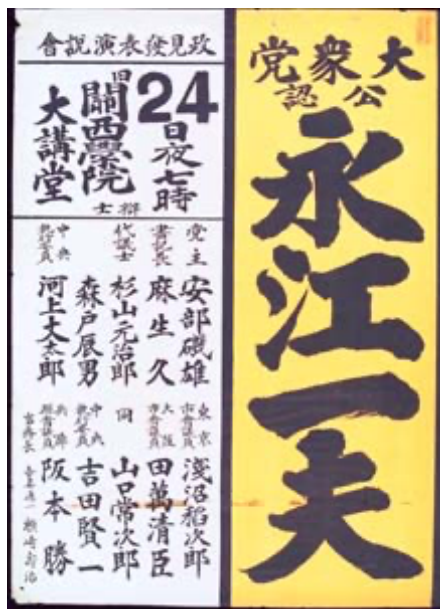 大衆党
公認
永江一夫
政見發表演説會
24日夜七時
旧關西學院
大講堂
辯士
党主 安部磯雄
書記長 麻生久
代議士 杉山元治郎
森戸辰男
中央執行委員 河上丈太郎
東京市會議員 淺沼稲次郎
大阪市會議員 田萬清臣
同 山口常次郎
中央執行委員 吉田賢一
兵庫縣會議員 阪本勝